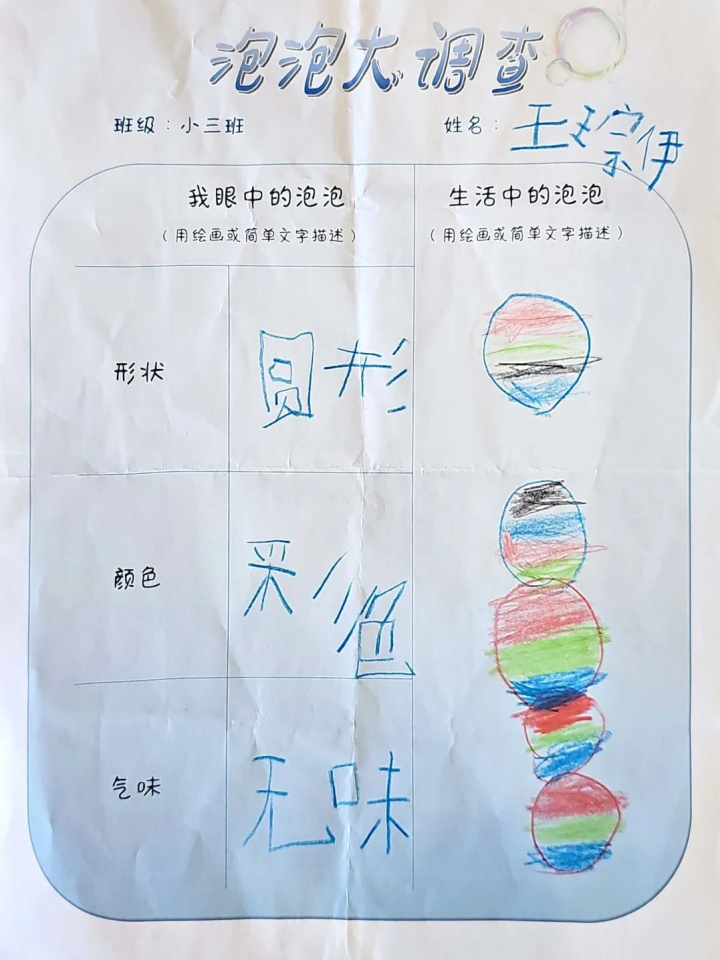 泡泡大调查
班级：小三班
姓名：王琮伊
我眼中的泡泡
（用绘画或简单文字描述）
生活中的泡泡
（用绘画或简单文字描述）
形状
圆形
颜色
彩色
气味
无味